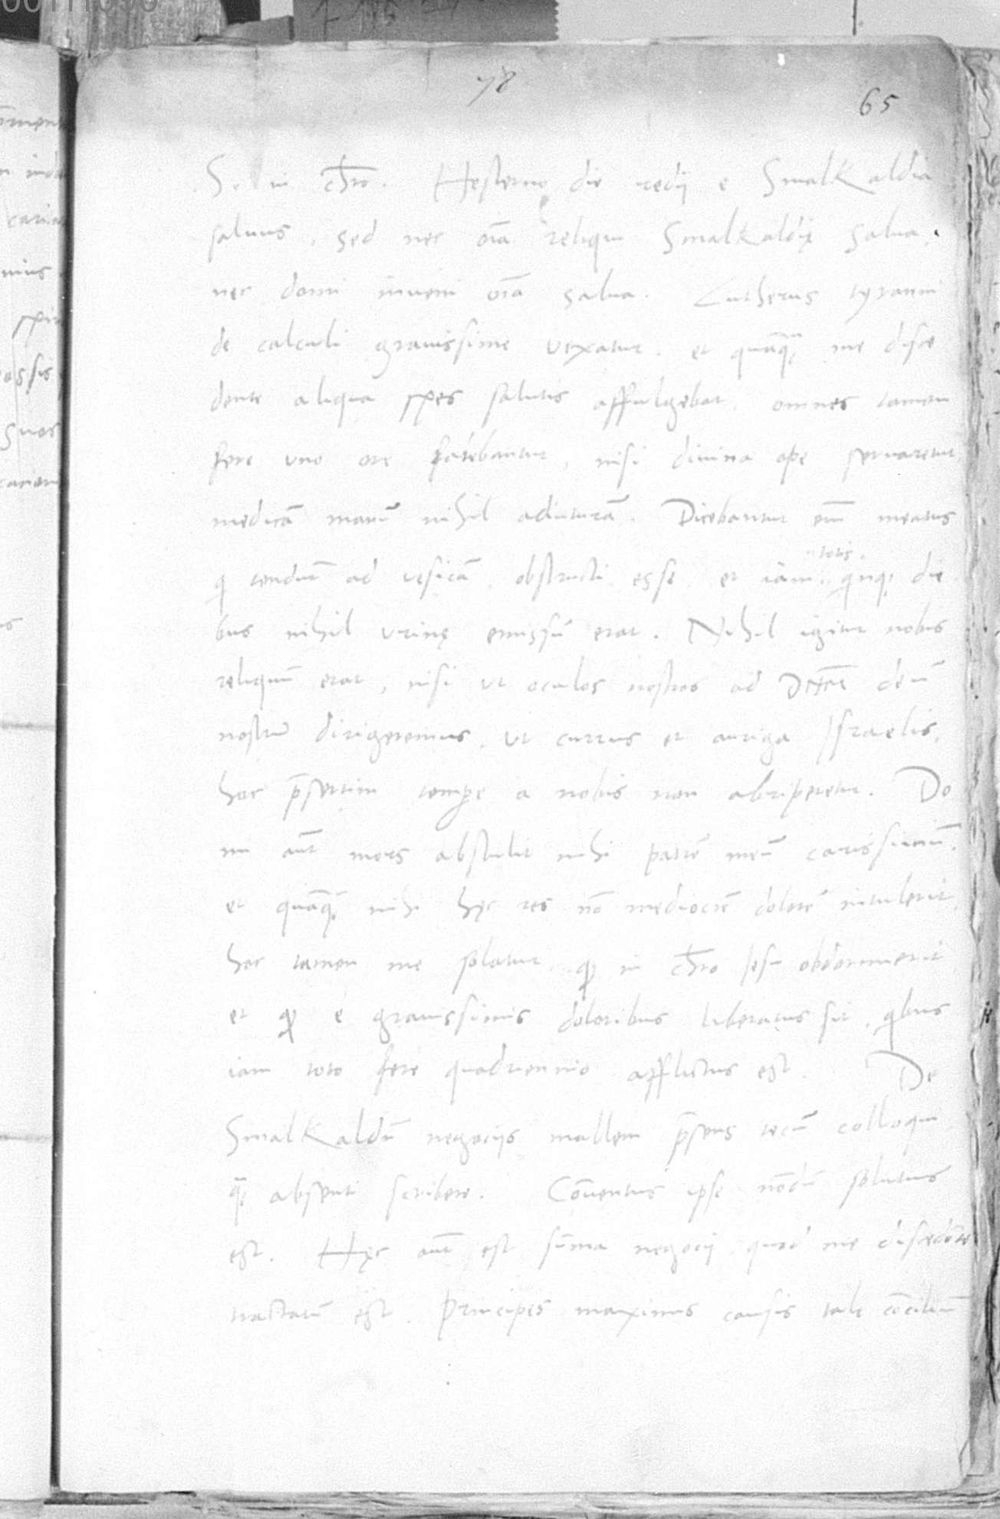 78
65
S. in chro. Hesterno die redij e SmalKaldia
saluus, sed nec oia reliqui SmalKaldię salua,
nec domi inueni oia salua. Lutherus tyranni
de calculi grauissime vexatur. et quaq me disce
dente aliqua spes salutis affulgebat, omnes tamen
fere vno ore fatebantur, nisi diuina ope seruaretur
medica manu nihil adiutura. Dicebantur em meatus
q tendunt ad vesica obstructi esse et iam totis quinq die
bus nihil vrinę emissu erat. Nihil igitur nobis
reliquu erat, nisi vt oculos nostros ad deu
nostru dirigeremus, vt currus et auriga Israelis,
hoc psertim tempe a nobis non abriperetur. Do
mi aut mors abstulit mihi patre meu carissimu,
et quaq mihi hęc res no mediocre dolore intulerit,
hoc tamen me solatur, q in chro Iesu obdormierit
et q e grauissimis doloribus liberatus sit, qbus
iam toto fere quadriennio afflictus est. De
SmalKaldi negocijs mallem psens tecu colloqui
q absenti scribere. Couentus ipse nodu solutus
est. Hęc aut est suma negocij quod me discedete
tractatu est. Principes maximis causis tale conciliu